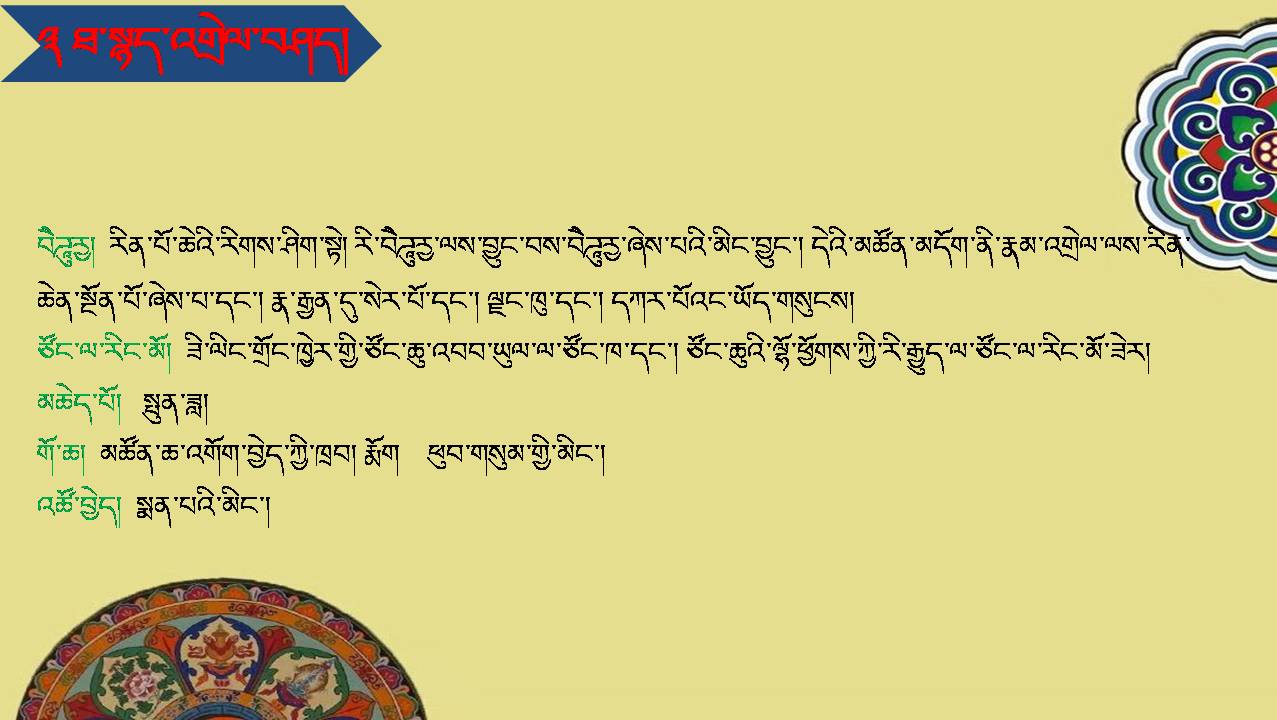 ༣ ཐ་སྙད་འགྲེལ་བཤད།
བཻཌཱུརྱ། རིན་པོ་ཆེའི་རིགས་ཤིག་སྟེ། རི་བཻཌཱུརྱ་ལས་བྱུང་བས་བཻཌཱུརྱ་ཞེས་པའི་མིང་བྱུང་། དེའི་མཚོན་མདོག་ནི་རྣམ་འགྲེལ་ལས་རིན་
ཆེན་སྔོན་པོ་ཞེས་པ་དང་། རྣ་རྒྱན་དུ་སེར་པོ་དང་། ལྗང་ཁུ་དང་། དཀར་པོའང་ཡོད་གསུངས།
ཙོང་ལ་རིང་མོ། ཟི་ལིང་གྲོང་ཁྱེར་གྱི་ཙོང་ཆུ་འབབ་ཡུལ་ལ་ཙོང་ཁ་དང་། ཙོང་ཆུའི་ལྷོ་ཕྱོགས་ཀྱི་རི་རྒྱུད་ལ་ཙོང་ལ་རིང་མོ་ཟེར།
མཆེད་པོ། སྤུན་ཟླ།
གོ་ཆ། མཚོན་ཆ་འགོག་བྱེད་ཀྱི་ཁྲབ། རྨོག ཕུབ་གསུམ་གྱི་མིང་།
འཚོ་བྱེད། སྨན་པའི་མིང་།